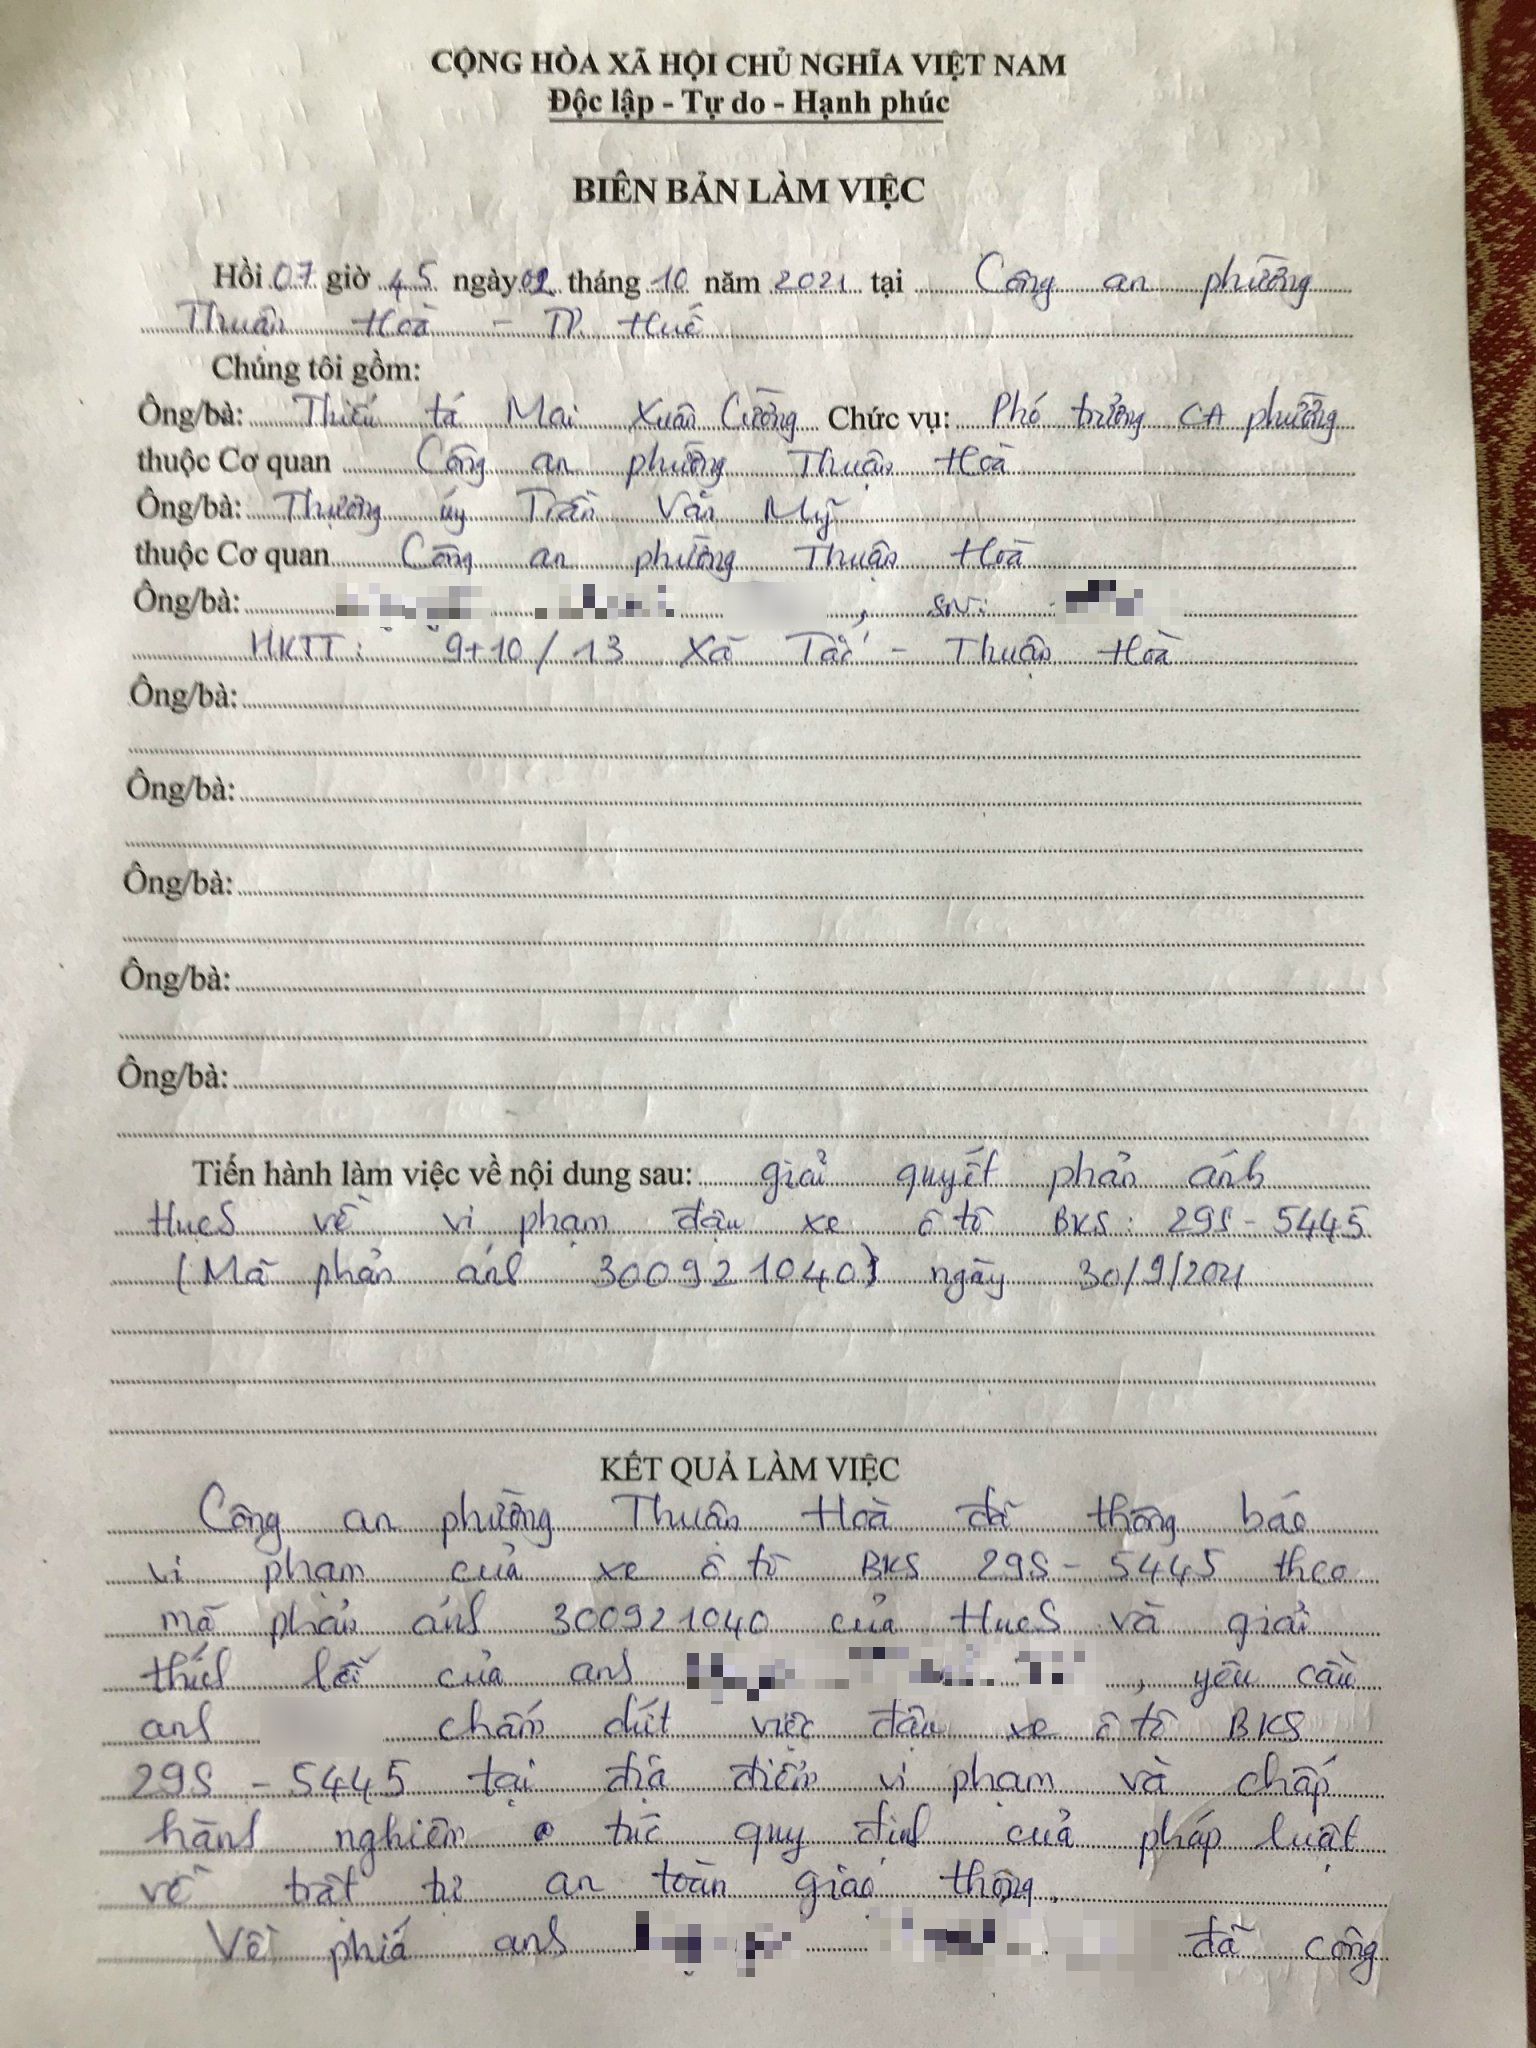 CỘNG HÒA XÃ HỘI CHỦ NGHĨA VIỆT NAM
Độc lập - Tự do - Hạnh phúc
BIÊN BẢN LÀM VIỆC
Hồi 07 giờ 45 ngày 02 tháng 10 năm 2021 tại Công an phường
Thuận Hoà - TP. Huế
Chúng tôi gồm:
Ông/bà: Thiếu tá Mai Xuân Cường Chức vụ: Phó trưởng CA phường
thuộc Cơ quan Công an phường Thuận Hoà
Ông/bà: Thượng úy Trần Văn Mỹ
thuộc Cơ quan Công an phường Thuận Hoà
Ông/bà: , SN:
HKTT: 9+10/13 Xã Tắc - Thuận Hoà
Ông/bà:
Ông/bà:
Ông/bà:
Ông/bà:
Ông/bà:
Tiến hành làm việc về nội dung sau: giải quyết phản ánh
HueS về vi phạm đậu xe ô tô BKS: 29S - 5445
(Mã phản ánh 300921040) ngày 30/9/2021
KẾT QUẢ LÀM VIỆC
Công an phường Thuận Hoà đã thông báo
vi phạm của xe ô tô BKS 29S - 5445 theo
mã phản ánh 300921040 của HueS và giải
thích lỗi của anh , yêu cầu
anh chấm dứt việc đậu xe ô tô BKS
29S - 5445 tại địa điểm vi phạm và chấp
hành nghiêm túc quy định của pháp luật
về trật tự an toàn giao thông.
Về phía anh đã công